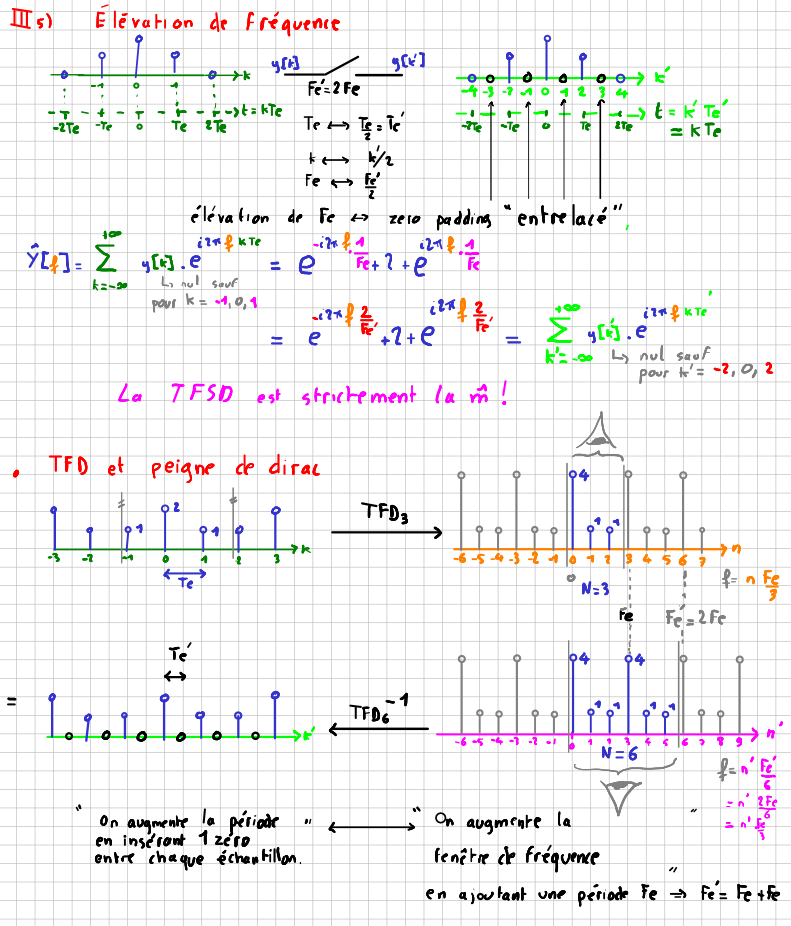 III 5) Élévation de fréquence
y[k] y[k']
Fe'=2Fe
k
-1 0 1
t=kTe
-2Te -Te 0 Te 2Te
k'
-4 -3 -2 -1 0 1 2 3 4
t = k' Te'
= k Te
-2Te -Te 0 Te 2Te
Te ↔ Te/2 = Te'
k ↔ k'/2
Fe ↔ Fe'/2
élévation de Fe ↔ zero padding "entrelacé"
Ŷ[f] = ∑_{k=-∞}^{+∞} y[k] . e^{i2π f kTe} = e^{-i2π f . 1/Fe} + 2 + e^{i2π f . 1/Fe}
↳ nul sauf
pour k = -1, 0, 1
= e^{-i2π f 2/Fe'} + 2 + e^{i2π f 2/Fe'} = ∑_{k'=-∞}^{+∞} y[k'] . e^{i2π f kTe'}
↳ nul sauf
pour k' = -2, 0, 2
La TFSD est strictement la m̂ !
• TFD et peigne de dirac
2 1 1
-3 -2 -1 0 1 2 3 k
Te
TFD3
4 1 1
-6 -5 -4 -3 -2 -1 0 1 2 3 4 5 6 7 n
N=3
f= n Fe/3
Fe Fe'=2Fe
= Te'
k'
TFD6^-1
4 1 1 4 1 1
-6 -5 -4 -3 -2 -1 0 1 2 3 4 5 6 7 8 9 n'
N=6
f= n' Fe'/6
= n' 2Fe/6
= n' Fe/3
" On augmente la période "
en insérant 1 zéro
entre chaque échantillon.
" On augmente la "
fenêtre de fréquence
en ajoutant une période Fe " ⇒ Fe' = Fe + Fe